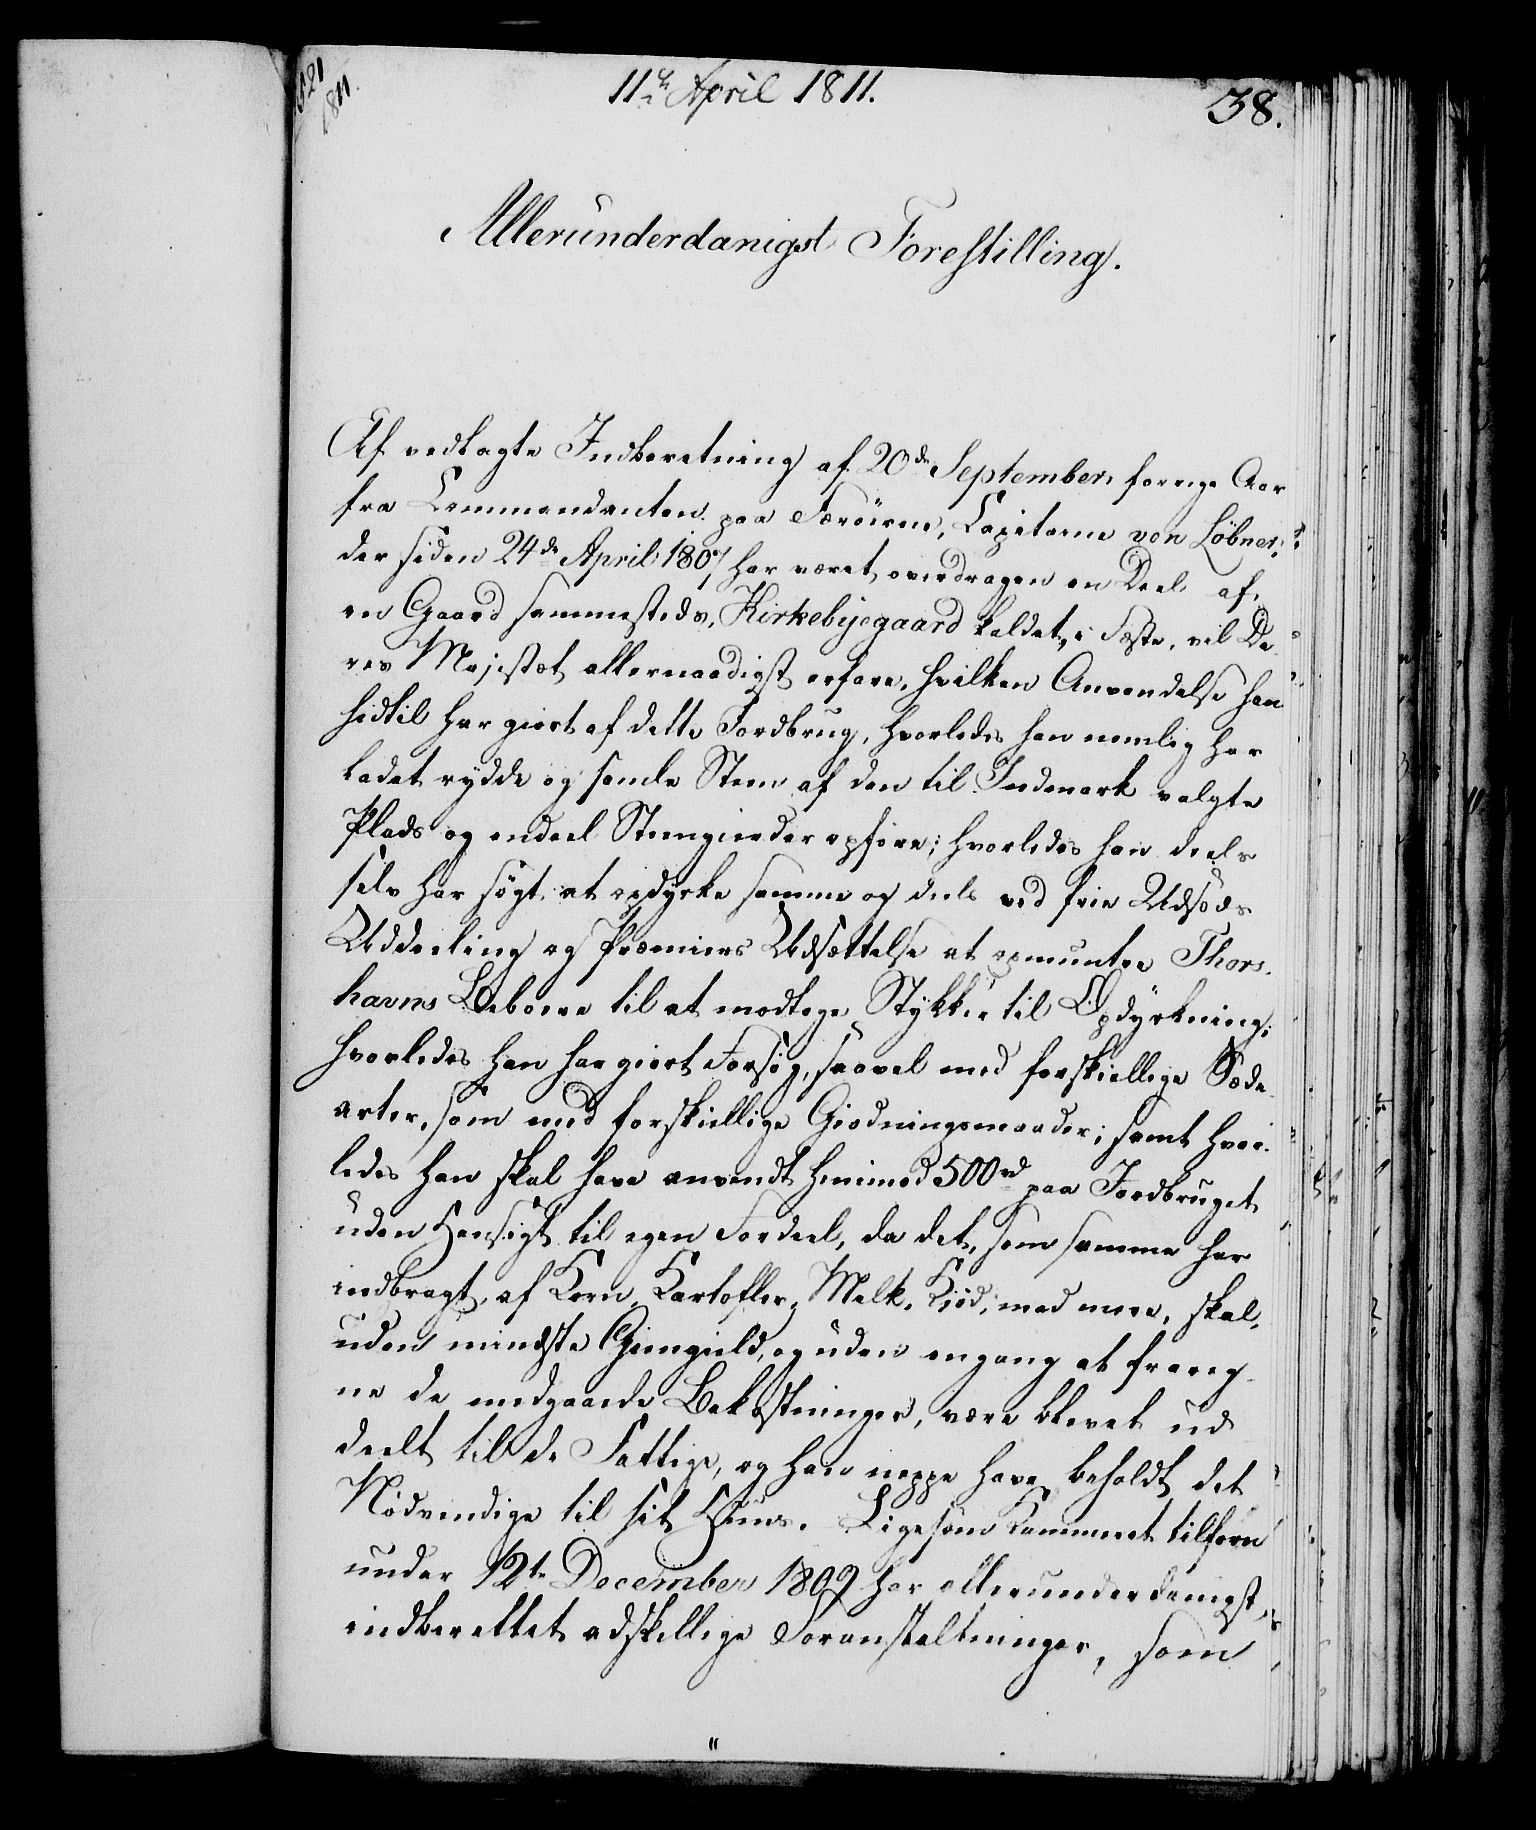 11te April 1811.
38.
1811.
Allerunderdanigst Forestilling.
Af vedlagte Indberetning af 20de September forrige Aar
fra Commandanten paa Færöerne, Capitaine von Löbner,
der siden 24de April 1807 har været overdragen en Deel af
en Gaard sammesteds, Kirkebyegaard kaldet, i Fæste, vil De-
res Majestæt allernaadigst erfare, hvilken Anvendelse han
hidtil har giort af dette Jordbrug, hvorledes han nemlig har
ladet rydde og samle Steen af den til Indmark valgte
Plads og endeel Steengierder opføre; hvorledes han deels
selv har søgt at opdyrke samme og deels ved frie Udsæds
Uddeeling og Præmiers Udsættelse at opmuntre Thors-
havns Beboere til at modtage Stykker til Opdyrkning;
hvorledes han har giort Forsøg, saavel med forskiellige Sæde-
arter, som med forskiellige Giødningsmaader; samt hvor-
ledes han skal have anvendt henimod 500 rd paa Jordbruget
uden Hensigt til egen Fordeel, da det, som samme har
indbragt af Korn, Kartofler, Melk, Kiöd, med mere, skal,
uden mindste Giengield, og uden engang at frareg-
ne de medgaaede Bekostninger, være blevet ud-
deelt til de Fattige, og han neppe have beholdt det
Nödvendige til sit Huus. Ligesom Kammeret tilforn
under 12te December 1809 har allerunderdanigst
indberettet adskillige Foranstaltninger, som